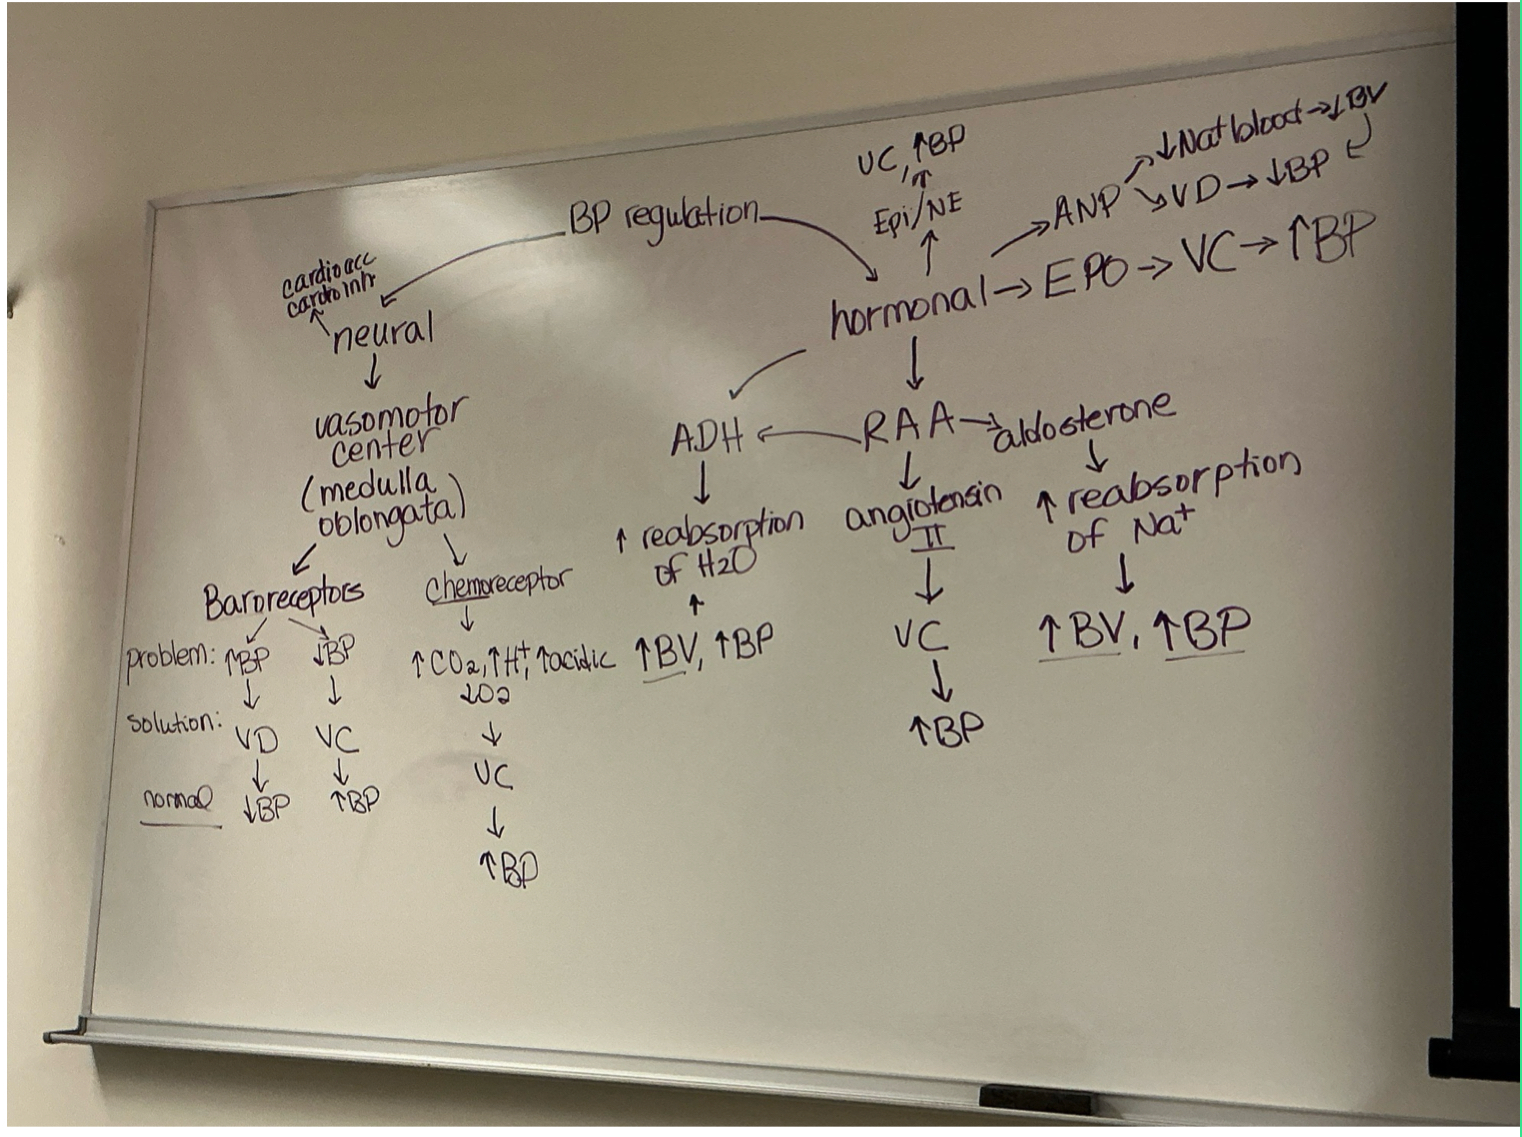 BP regulation
cardioacc
cardio inh
neural
↓
vasomotor
center
(medulla
oblongata)
Baroreceptors
problem: ↑BP ↓BP
↓ ↓
solution: VD VC
↓ ↓
normal ↓BP ↑BP
chemoreceptor
↓
↑CO2, ↑H+, ↑acidic
↓O2
↓
VC
↓
↑BP
hormonal
↑
Epi/NE
↑
VC, ↑BP
→ ANP
↗ ↓Na+ blood → ↓BV
↘ VD → ↓BP
→ EPO → VC → ↑BP
↓
ADH ← RAA → aldosterone
ADH
↓
↑ reabsorption
of H2O
↑
↑BV, ↑BP
↓
angiotensin
II
↓
VC
↓
↑BP
↓
↑ reabsorption
of Na+
↓
↑BV, ↑BP